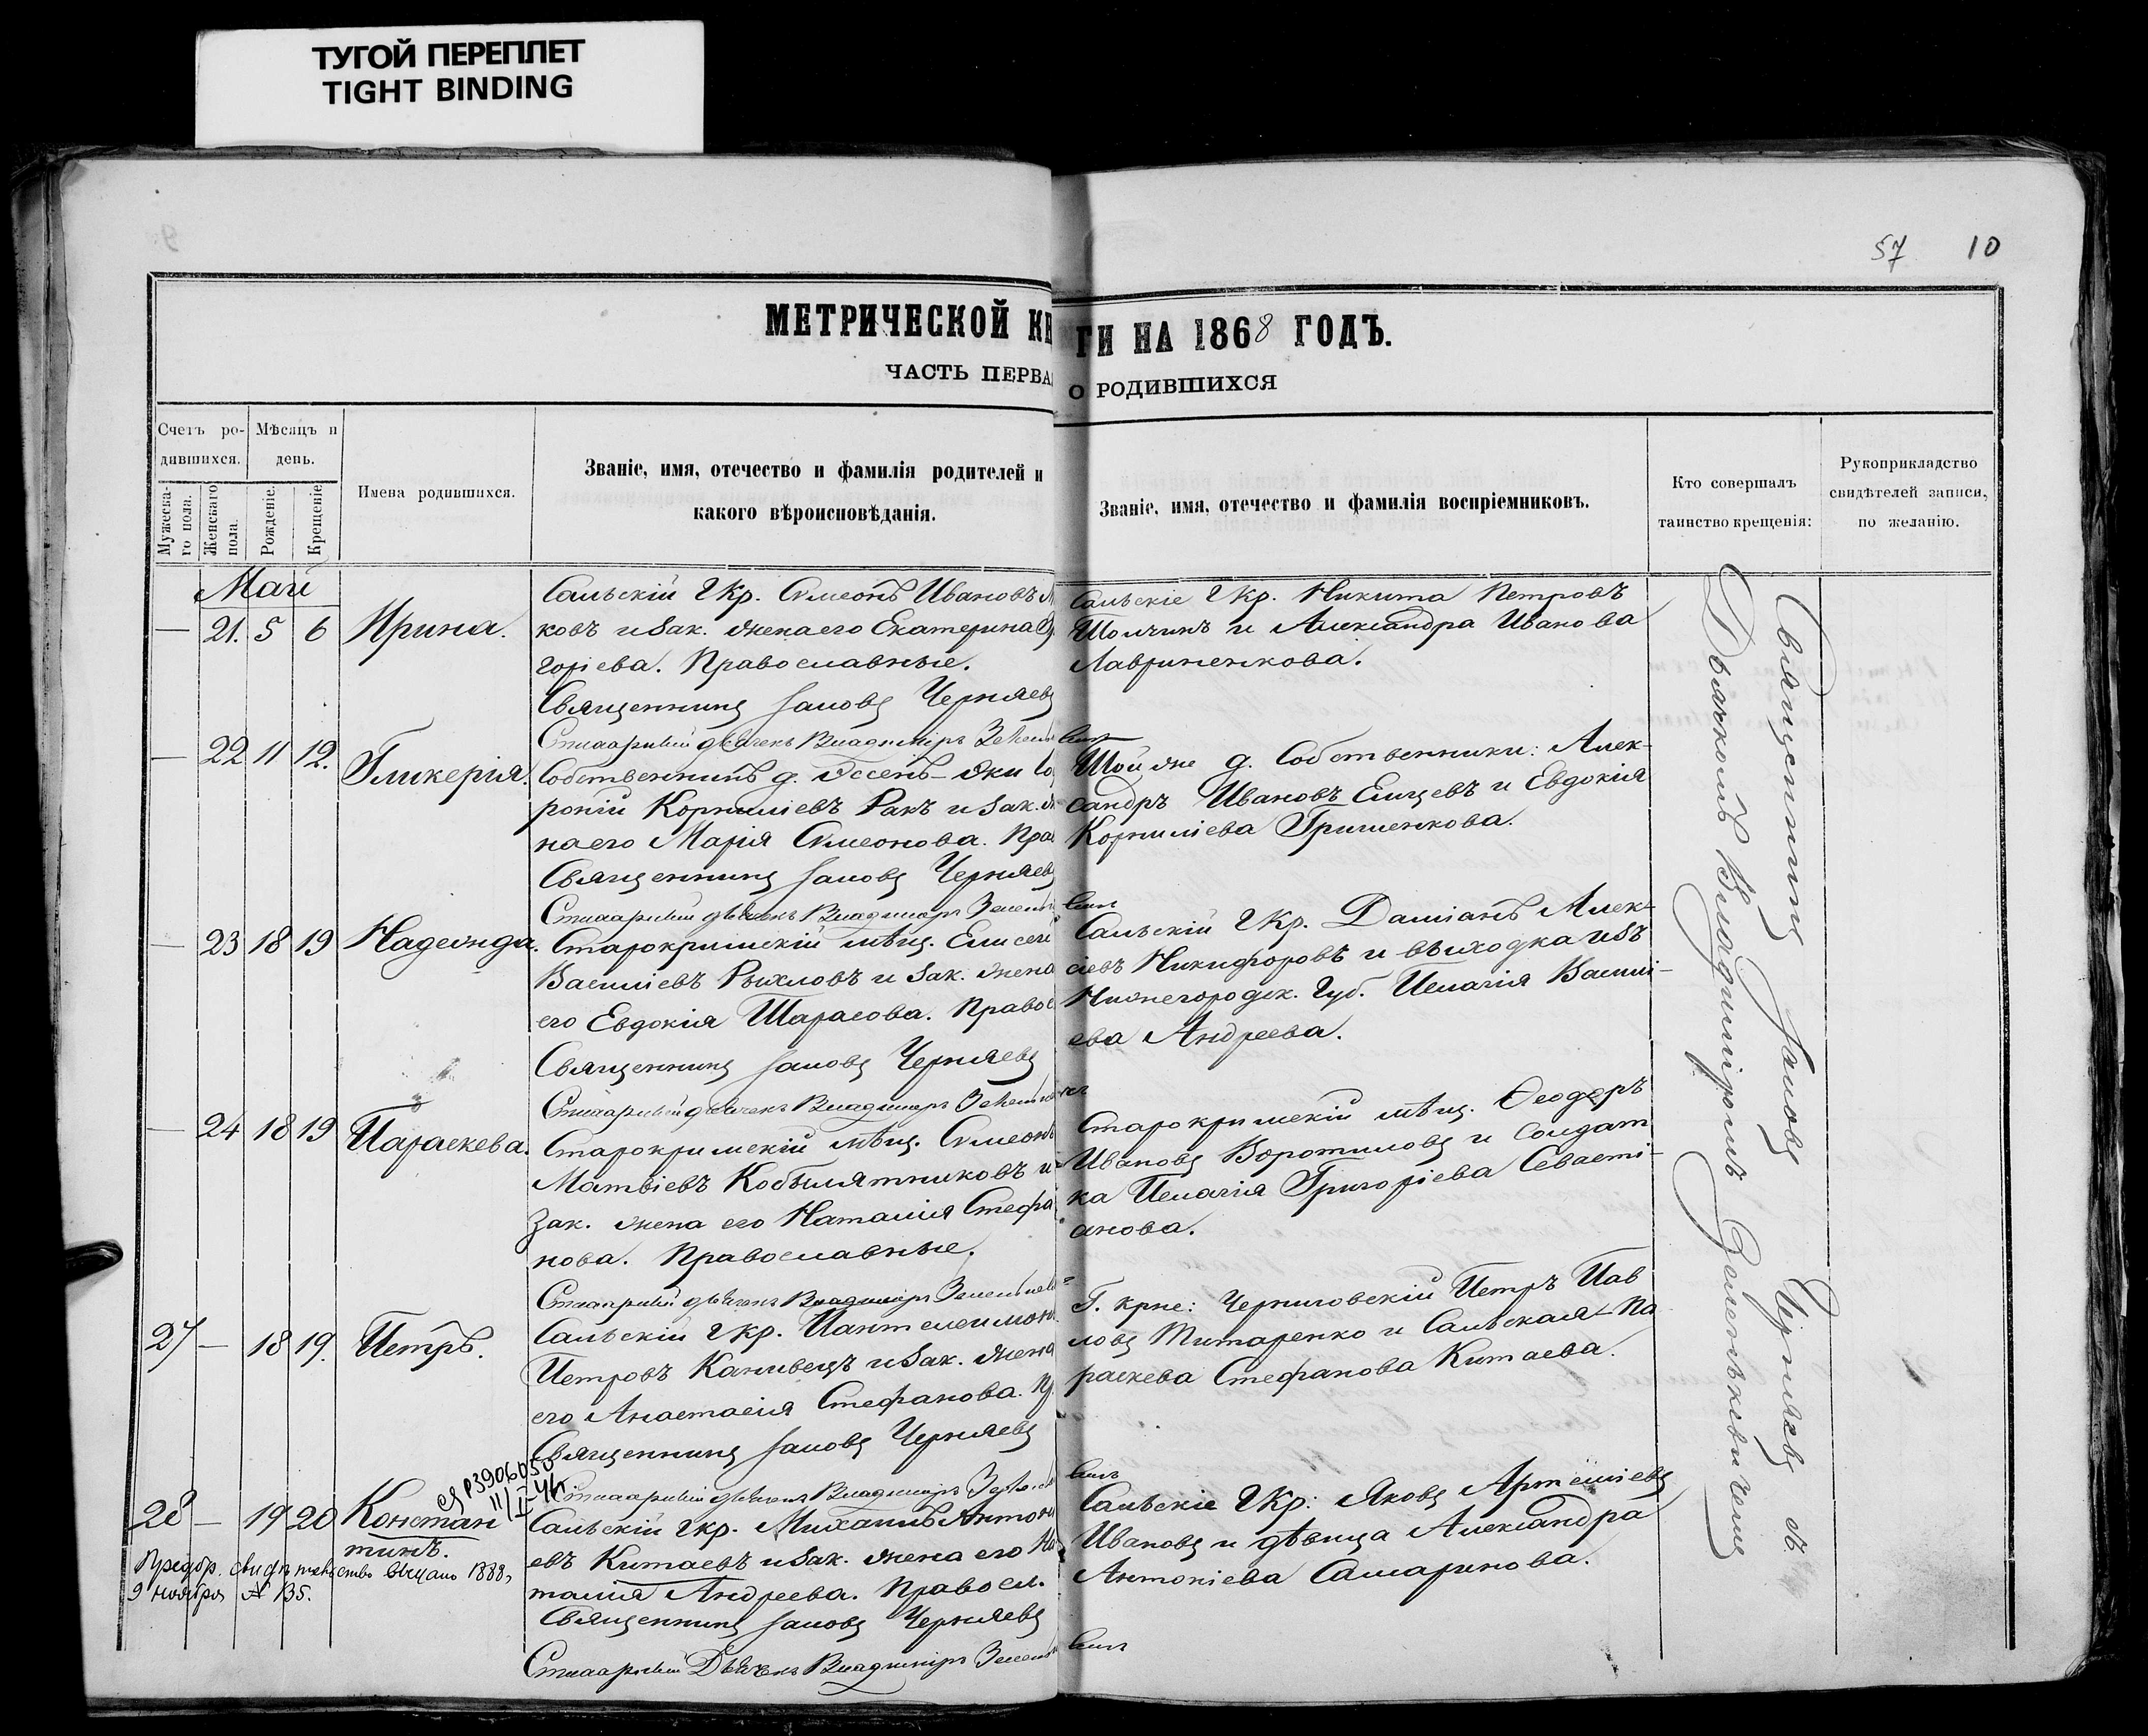 ТУГОЙ ПЕРЕПЛЕТ
TIGHT BINDING
57 10
МЕТРИЧЕСКОЙ КН
ГИ НА 1868 ГОДЪ.
ЧАСТЬ ПЕРВА
О РОДИВШИХСЯ
Счетъ ро-
дившихся.
Мѣсяцъ и
день.
Мужеска-
го пола.
Женскаго
пола.
Рожденіе.
Крещеніе
Имена родившихся.
Званіе, имя, отечество и фамилія родителей и
какого вѣроисповѣданія.
Званіе, имя, отечество и фамилія воспріемниковъ.
Кто совершалъ
таинство крещенія:
Рукоприкладство
свидѣтелей записи,
по желанію.
Май
— 21. 5 6 Ирина.
Сальскій Г Кр. Симеонъ Ивановъ
ковъ и зак. жена его Екатерина
горіева. Православные.
Священникъ Іаковъ Черняевъ
Стихарный дьячекъ Владиміръ
Сальскіе Г Кр. Никита Петровъ
и Александра Иванова
Лавриненкова.
— 22 11 12. Гликерія.
Собственникъ д.
роній Корниліевъ Ракъ и зак.
на его Марія Симеонова. Пра
Священникъ Іаковъ Черняевъ
Стихарный дьячекъ Владиміръ
Той же д. Собственники: Алек-
сандръ Ивановъ Елицевъ и Евдокія
Корниліева Гришенкова.
— 23 18 19 Надежда.
Старокримскій мѣщ. Елисей
Василіевъ Рыхловъ и зак. жена
его Евдокія Тарасова. Правос
Священникъ Іаковъ Черняевъ
Стихарный дьячекъ Владиміръ
Сальскій Г Кр. Даміанъ Алек-
сіевъ Никифоровъ и выходка изъ
Нижегородск. Губ. Пелагія Васили-
ева Андреева.
— 24 18 19 Параскева.
Старокримскій мѣщ. Симеонъ
Матвіевъ Кобылятниковъ и
зак. жена его Наталія Стефа
нова. Православные.
Стихарный дьячекъ Владиміръ
Старокримскій мѣщ. Ѳеодоръ
Ивановъ Воротиловъ и Солдат
ка Пелагія Григоріева Севасті-
анова.
27 — 18 19. Петръ.
Сальскій Г Кр. Пантелеимонъ
Петровъ Канивецъ и зак. жена
его Анастасія Стефанова. Пр.
Священникъ Іаковъ Черняевъ
Стихарный дьячекъ Владиміръ
Г. крне: Черниговскій Петръ Пав
ловъ Титаренко и Сальская Па
раскева Стефанова Китаева.
28 — 19 20 Констан
тинъ.
Сальскій Г Кр. Михаилъ Антоні
евъ Китаевъ и зак. жена его На
талія Андреева. Правосл.
Священникъ Іаковъ Черняевъ
Стихарный Дьячекъ Владиміръ
Сальскіе Г Кр: Яковъ Артеміевъ
Ивановъ и дѣвица Александра
Антоніева Самаринова.
свидѣтельство выдано 1888,
9 ноября № 135.
Священникъ Іаковъ Черняевъ съ
Дьячкомъ Владиміромъ Зеленькевичемъ